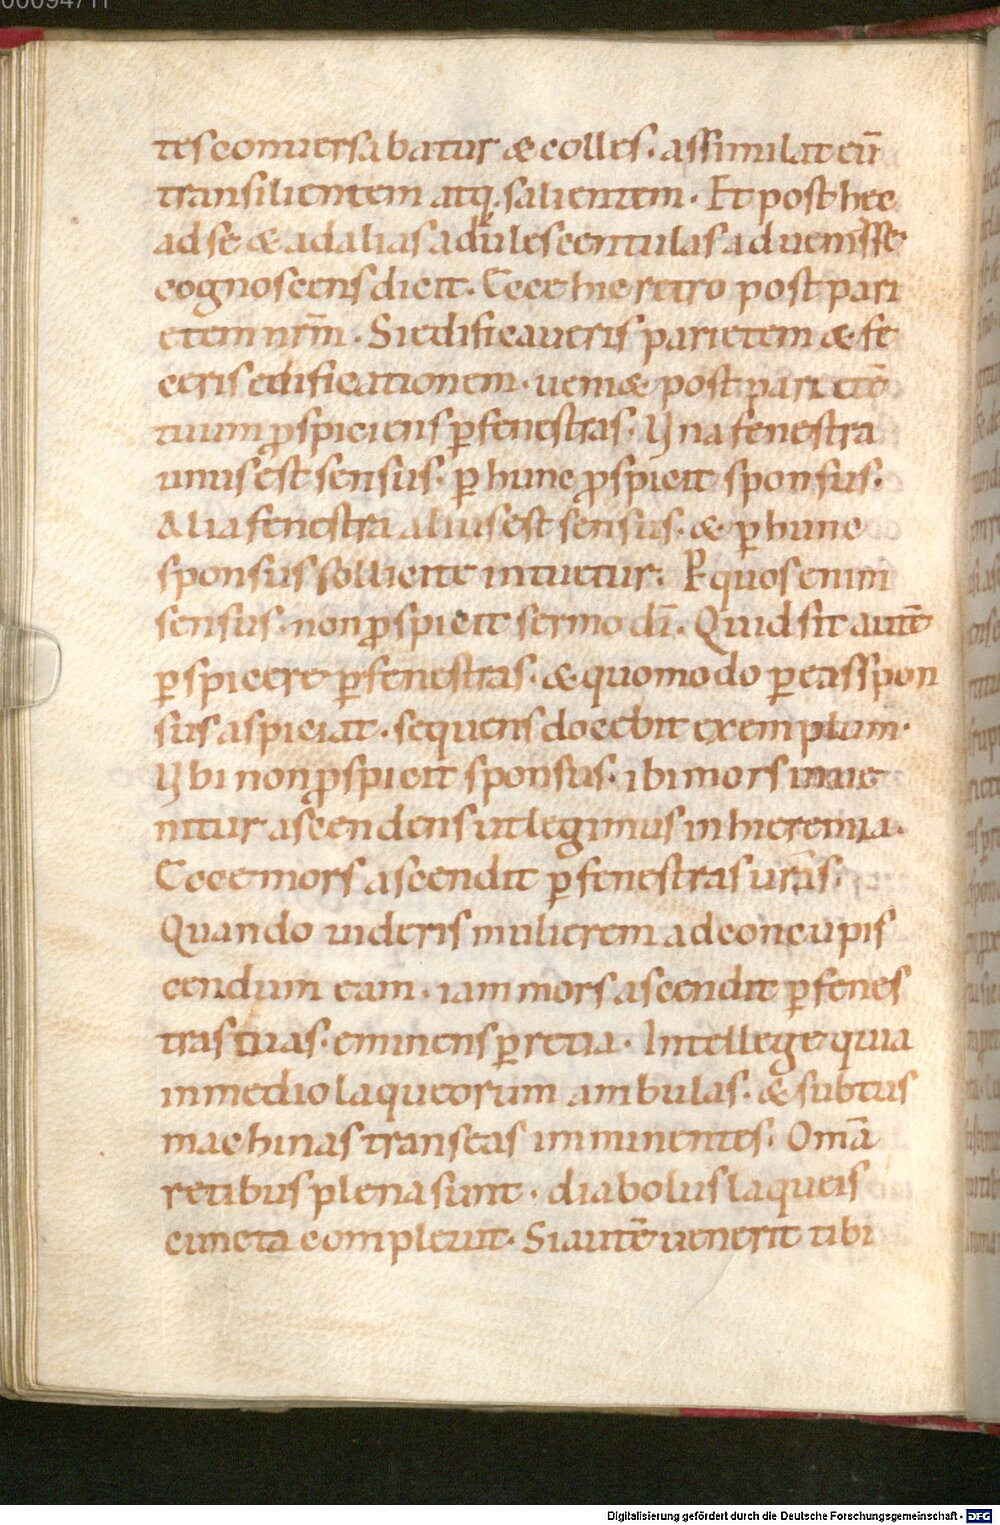 00094711
tes conuersabatur & colles. assimilat eū
transilientem atq. salientem. Et post hec
ad se & ad alias adulescentulas aduenisse
cognoscens dicit. Ecce hic retro post pari
etem nrm̄. Si edificaueris parietem & fe
ceris edificationem. ueniæ post parietē
tuum ꝓspiciens ꝑ fenestras. Una fenestra
unus est sensus. ꝑ hunc ꝓspicit sponsus.
Alia fenestra alius est sensus. & ꝑ hunc
sponsus sollicite intuetur. Ꝑ quos enim
sensus. non ꝓspicit sermo dī. Quid sit autē
ꝑspicere ꝑ fenestras. & quomodo ꝑ eas spon
sus aspiciat. sequens docebit exemplum.
Ubi non ꝓspicit sponsus. ibi mors inue
nitur ascendens ut legimus in hieremia.
Ecce mors ascendit ꝑ fenestras urās.
Quando uideris mulierem ad concupis
cendum eam. iam mors ascendit ꝑ fenes
tras tuas. eminens ꝑ retia. Intellege quia
in medio laqueorum ambulas. & subtus
machinas transeas imminentes. Omā
retibus plena sunt. diabolus laqueis
cuncta compleuit. Si autē uenerit tibi
Digitalisierung gefördert durch die Deutsche Forschungsgemeinschaft - DFG